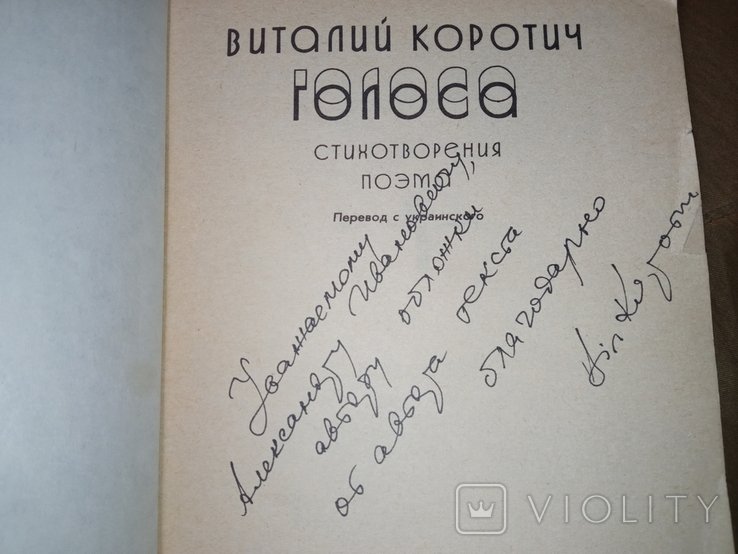 ВИТАЛИЙ КОРОТИЧ
ГОЛОСА
СТИХОТВОРЕНИЯ
ПОЭМЫ
Перевод с украинского
Уважаемому
Александру Ивановичу,
автору обложки
от автора текста
благодарно
VIOLITY